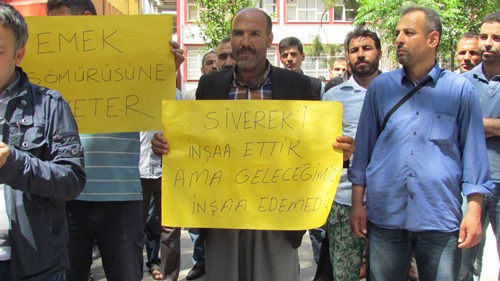 EMEK
SÖMÜRÜSÜNE
YETER
SİVEREKİ
İNŞAA ETTİK
AMA GELECEĞİMİZİ
İNŞAA EDEMEDİK